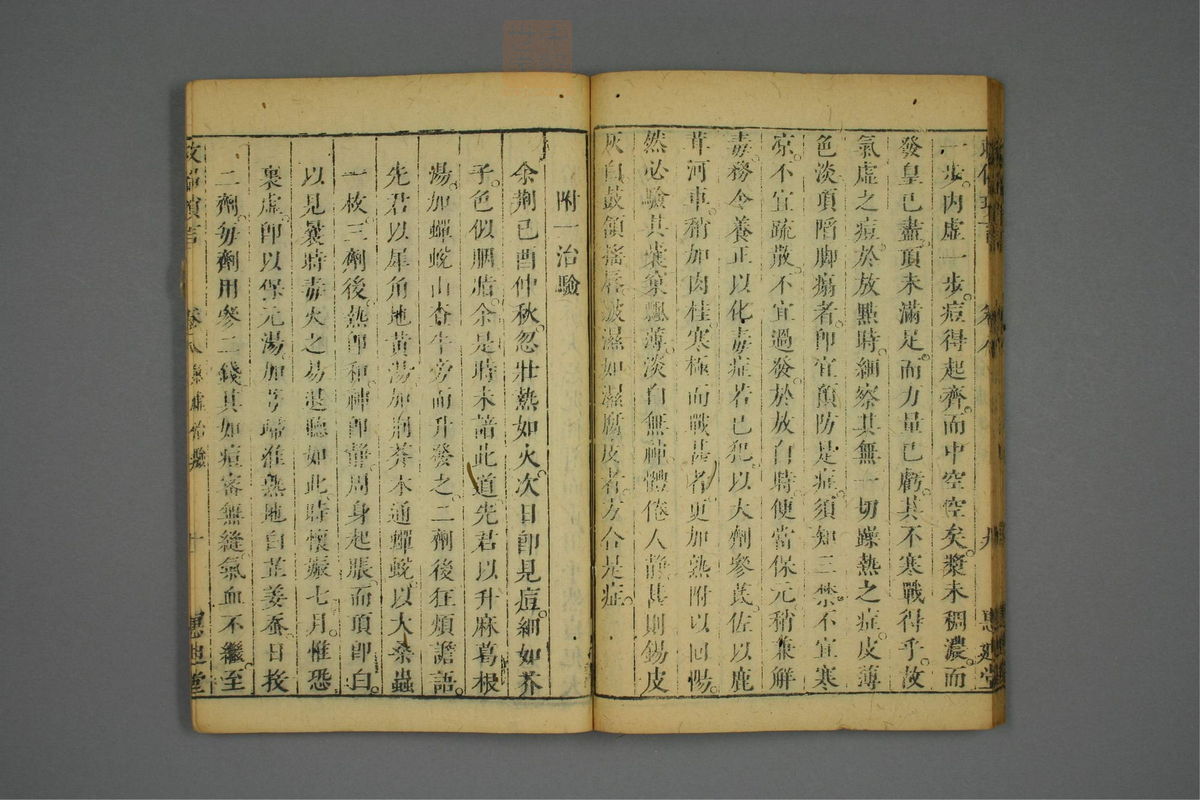 一步內虛一步痘得起齊而中空空矣漿未稠濃而
發皇已盡頂未滿足而力量已虧其不寒戰得乎故
氣虛之痘於放㸃時細察其無一切躁熱之症皮薄
色淡頂陷脚塌者卽宜預防是症須知三禁不宜寒
凉不宜疏散不宜過發於放白時便當保元稍兼解
毒務令養正以化毒症若已犯以大劑參芪佐以鹿
茸河車稍加肉桂寒極而戰甚者更加熟附以囘陽
然必驗其葉窠飄薄淡白無神體倦人静甚則錫皮
灰白鼓頷搖唇破濕如濕腐皮者方合是症
附一治驗
余荆已酉仲秋忽壯熱如火次日卽見痘細如芥
子色似胭脂余是時未諳此道先君以升麻葛根
湯加蟬蛻山查牛旁而升發之二劑後狂煩譫語
先君以犀角地黃湯加荆芥木通蟬蛻以大桑蟲
一枚三劑後熱卽和神卽靜周身起脹而頂卽白
以見曩時毒火之易退聽如此時懷娠七月惟恐
裏虛卽以保元湯加芎歸准熟地白芷姜蚕日投
二劑每劑用參二錢其如痘密無縫氣血不繼至
救偏瑣言
卷八
氣虛治驗
十
惠迪堂